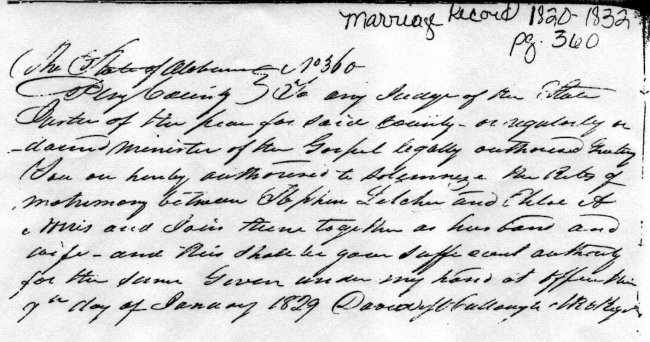 Marriage Record 1820-1832
pg. 360
The State of Alabama No 360
County } To any Judge of the State
Justice of the peace for said County - or regularly or
dained Minister of the Gospel legally authorised Greeting
You are hereby authorised to solemnize the Rites of
matrimony between Stephen and Chloe A
Norris and Join them together as husband and
wife - and this shall be your sufficient authority
for the same Given under my hand at office this
7th day of January 1829 David